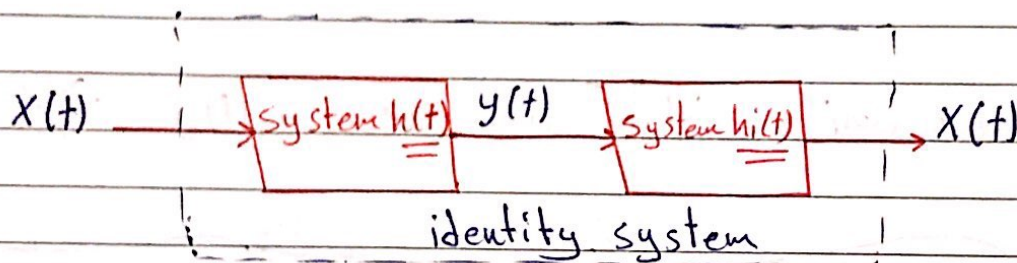 X(t) system h(t) y(t) system hi(t) X(t)
identity system